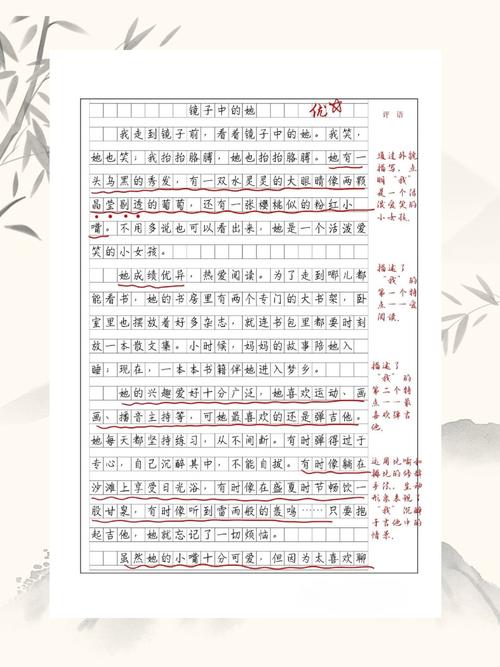 镜子中的她
优
评 语
我走到镜子前，看着镜子中的她。我笑，
她也笑；我抬抬胳膊，她也抬抬胳膊。她有一
头乌黑的秀发，有一双水灵灵的大眼睛像两颗
晶莹剔透的葡萄，还有一张樱桃似的粉红小
嘴。不用多说也可以看出来，她是一个活泼爱
笑的小女孩。
通过外貌
描写，点
明“我”
是一个活
泼爱笑的
小女孩。
她成绩优异，热爱阅读。为了走到哪儿都
能看书，她的书房里有两个专门的大书架，卧
室里也摆放着好多杂志，就连书包里都要时刻
放一本散文集。小时候，妈妈的故事陪她入
睡；现在，一本本书籍伴她进入梦乡。
描述了
“我”的
第一个特
点——爱
阅读。
她的兴趣爱好十分广泛，她喜欢运动、画
画、播音主持等，可她最喜欢的还是弹吉他。
她每天都坚持练习，从不间断。有时弹得过于
专心，自己沉醉其中，不能自拔。有时像躺在
沙滩上享受日光浴，有时像在盛夏时节畅饮一
股甘泉，有时像听到雷雨般的轰鸣……只要抱
起吉他，她就忘记了一切烦恼。
描述了
“我”的
第二个特
点——最
喜欢弹吉
他。
运用比喻和
排比的修辞
手法，生动
形象表现了
“我”沉醉
于吉他中的
情景。
虽然她的小嘴十分可爱，但因为太喜欢聊